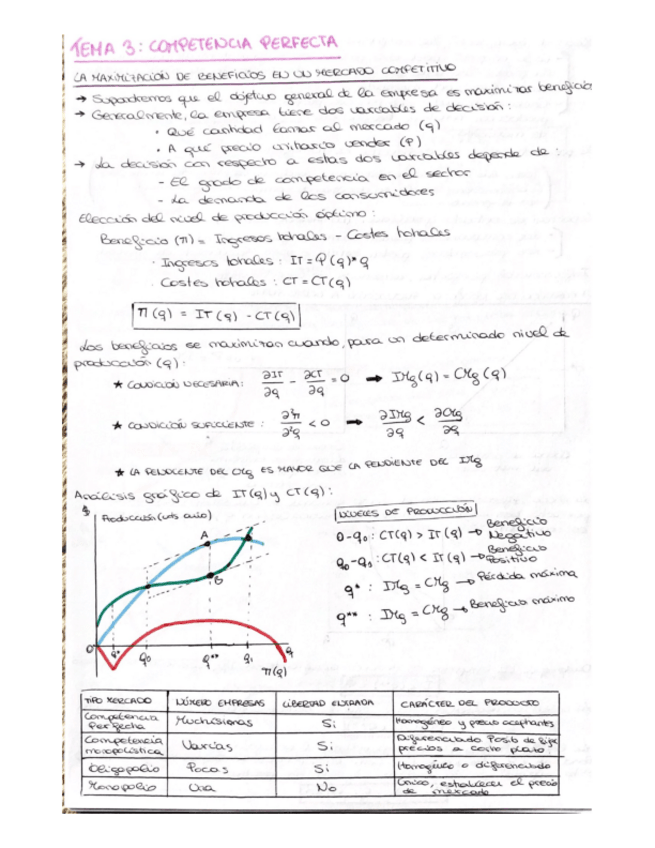 TEMA 3: COMPETENCIA PERFECTA
LA MAXIMIZACIÓN DE BENEFICIOS EN UN MERCADO COMPETITIVO
→ Supondremos que el objetivo general de la empresa es maximizar beneficios
→ Generalmente, la empresa tiene dos variables de decisión:
· Qué cantidad llamar al mercado (q)
· A qué precio unitario vender (P)
→ La decisión con respecto a estas dos variables depende de:
- El grado de competencia en el sector
- La demanda de los consumidores
Elección del nivel de producción óptimo:
Beneficio (π) = Ingresos totales - Costes totales
· Ingresos totales: IT = P(q)*q
· Costes totales: CT = CT(q)
π(q) = IT(q) - CT(q)
Los beneficios se maximizan cuando, para un determinado nivel de
producción (q):
★ CONDICIÓN NECESARIA: ∂IT/∂q - ∂CT/∂q = 0 → IMg(q) = CMg(q)
★ CONDICIÓN SUFICIENTE: ∂²π/∂²q < 0 → ∂IMg/∂q < ∂CMg/∂q
★ LA PENDIENTE DEL CMg ES MAYOR QUE LA PENDIENTE DEL IMg
Análisis gráfico de IT(q) y CT(q):
$ Producción (uts año)
A
B
0 q* q0 q** q1 q
π(q)
NIVELES DE PRODUCCIÓN
0-q0: CT(q) > IT(q) → Beneficio Negativo
q0-q1: CT(q) < IT(q) → Beneficio Positivo
q*: IMg = CMg → Pérdida máxima
q**: IMg = CMg → Beneficio máximo
TIPO MERCADO NÚMERO EMPRESAS LIBERTAD ENTRADA CARÁCTER DEL PRODUCTO
Competencia Perfecta Muchísimas Sí Homogéneo y precio aceptantes
Competencia monopolística Varias Sí Diferenciado. Posib. de fijar precios a corto plazo
Oligopolio Pocas Sí Homogéneo o diferenciado
Monopolio Una No Único, establecer el precio de mercado